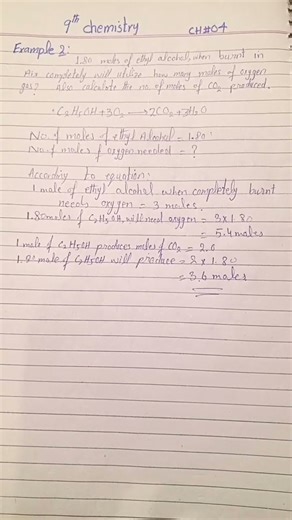 9th chemistry CH#04
Example 2:
1.80 moles of ethyl alcohol, when burnt in
Air completely will utilize how many moles of oxygen
gas? Also calculate the no. of moles of CO2 produced.
C2H5OH + 3O2 → 2CO2 + 3H2O
No. of moles of ethyl Alcohol = 1.80
No. of moles of oxygen needed = ?
According to equation:
1 mole of ethyl alcohol when completely burnt
needs oxygen = 3 moles.
1.80 moles of C2H5OH, will need oxygen = 3 x 1.80
= 5.4 moles
1 mole of C2H5OH produces moles of CO2 = 2.0
1.80 mole of C2H5OH will produce = 2 x 1.80
= 3.6 moles